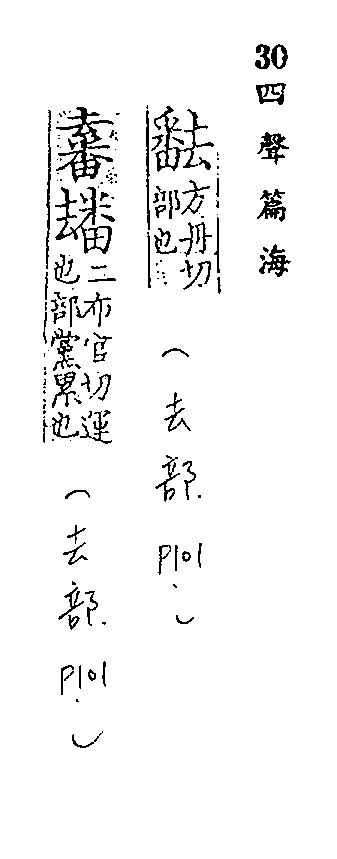 30 四聲篇海
方丹切
部也
(去部.P101.)
二布官切運
也部黨累也
(去部.P101.)